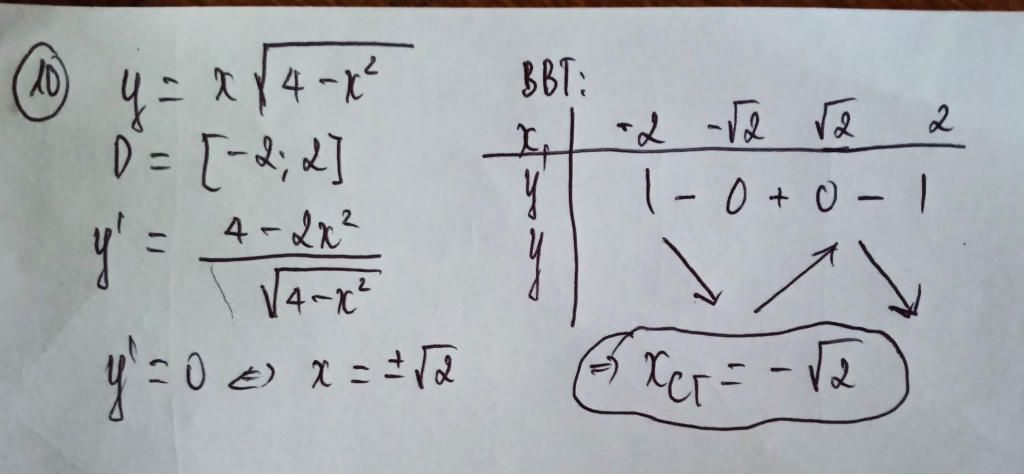 10 y = x √(4 - x²)
D = [-2; 2]
y' = (4 - 2x²) / √(4 - x²)
y' = 0 ⇔ x = ±√2
BBT:
x -2 -√2 √2 2
y' | - 0 + 0 - |
y ↘ ↗ ↘
⇒ x_CT = -√2